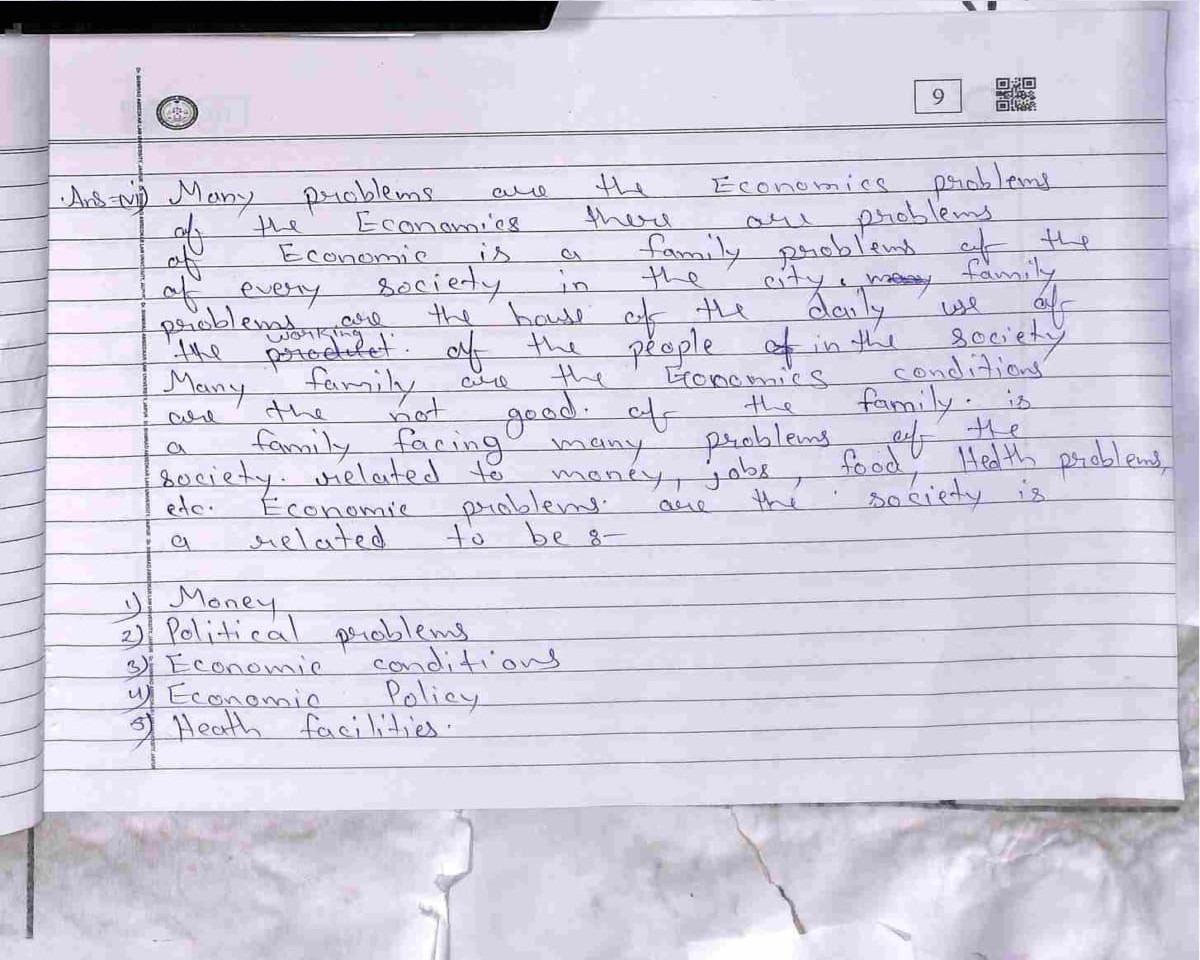 9
Ans=(vi) Many problems are the Economics problems
of the Economics there are problems
of Economic is a family problems of the
of every society in the city. many family
problems are the house of the daily use of
working
the product. of the people of in the society
Many family are the Economics conditions
are the not good. of the family. is
a family facing many problems of the
society. related to money, jobs, food, Hedth problems,
etc. Economic problems. are the society is
a related to be :-
1) Money
2) Political problems
3) Economic conditions
4) Economic Policy
5) Heath facilities.